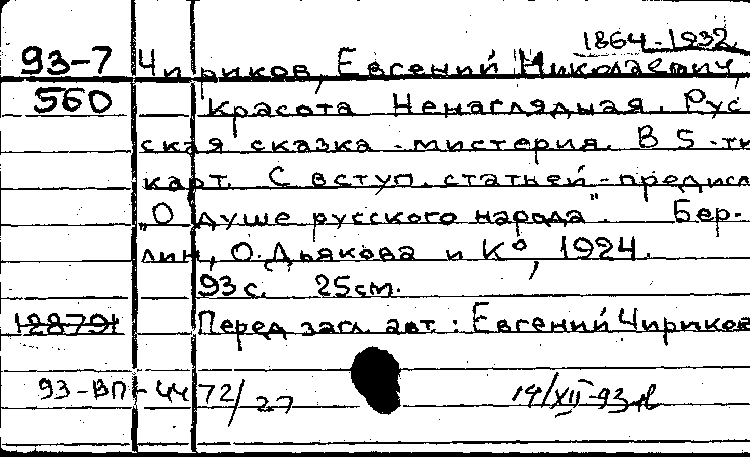 1864-1932
93-7 Чириков, Евгений Николаевич,
560 Красота Ненаглядная. Рус
ская сказка-мистерия. В 5-ти
карт. С вступ. статьей-предисл
"О душе русского народа". Бер-
лин, О. Дьякова и Кº, 1924.
93 с. 25 см.
128791 Перед загл. авт.: Евгений Чириков
93-ВП-44 72/27 14/XII-93